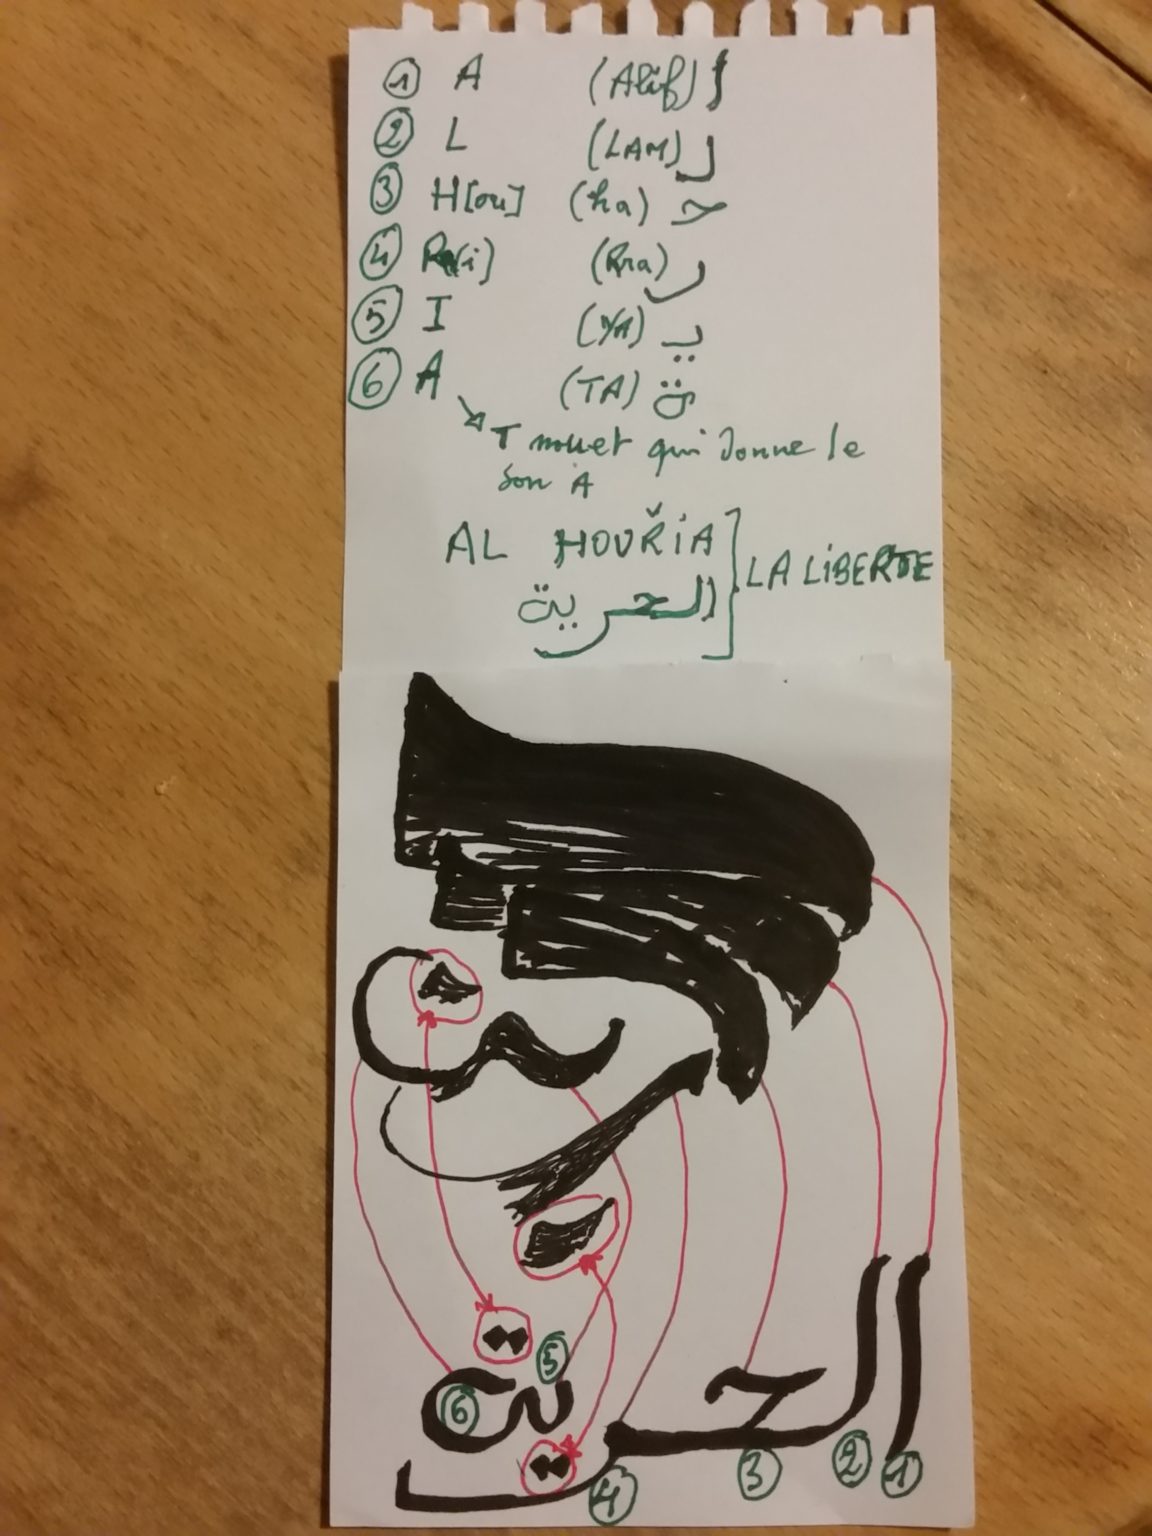 ① A (Alif) ا
② L (LAM) ل
③ H[ou] (ha) ح
④ R[i] (Rra) ر
⑤ I (YA) يـ
⑥ A (TA) ة
T muet qui donne le
son A
AL HOURIA
الحرية
LA LIBERTE
⑤
⑥
الحرية
④ ③ ② ①